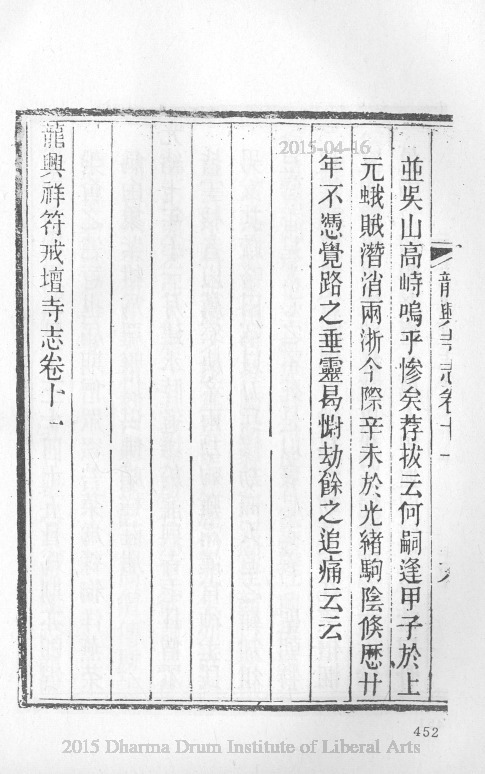 2015-04-16
龍興寺志卷十一
並吳山高峙嗚乎慘矣荐拔云何嗣逢甲子於上
元蛾賊潛消兩浙今際辛未於光緒駒陰倏歷廿
年不憑覺路之垂靈曷慰劫餘之追痛云云
龍興祥符戒壇寺志卷十一
452
2015 Dharma Drum Institute of Liberal Arts